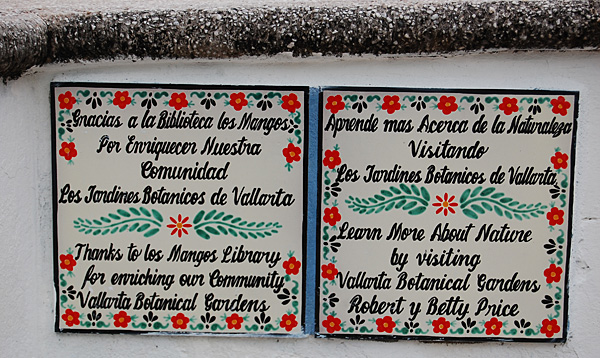 Gracias a la Biblioteca los Mangos
Por Enriquecer Nuestra
Comunidad
Los Jardines Botanicos de Vallarta
Thanks to los Mangos Library
for enriching our Community
Vallarta Botanical Gardens
Aprende mas Acerca de la Naturaleza
Visitando
Los Jardines Botanicos de Vallarta
Learn More About Nature
by visiting
Vallarta Botanical Gardens
Robert y Betty Price